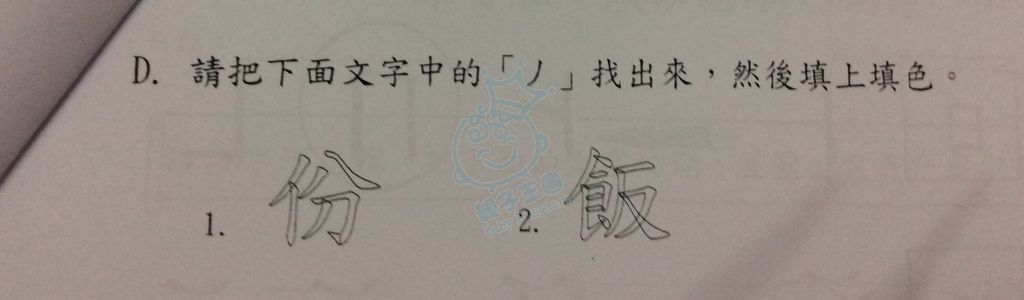 D. 請把下面文字中的「丿」找出來，然後填上填色。
1. 份 2. 飯
親子王國